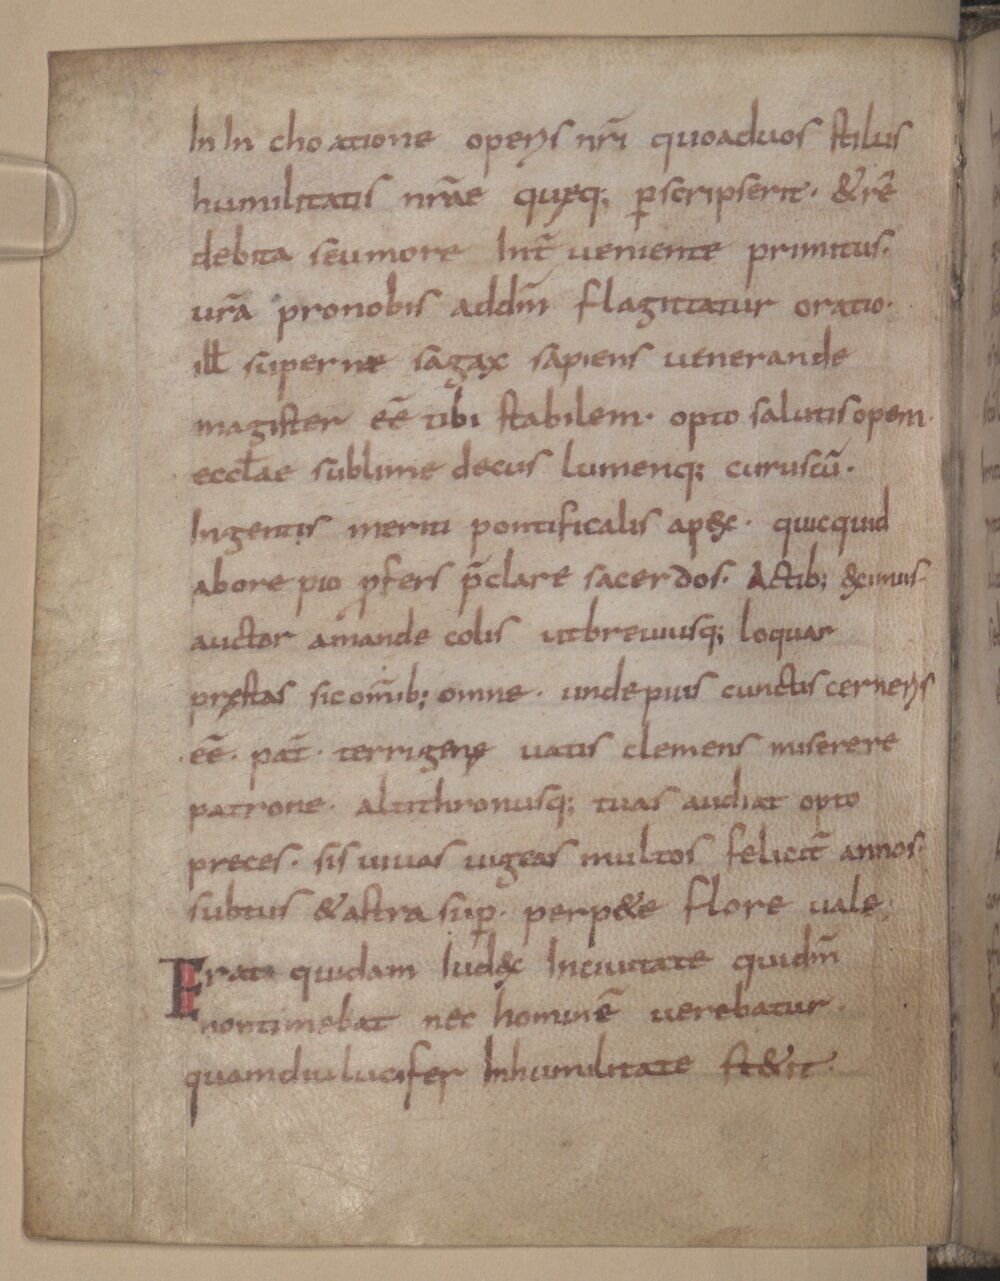 In In choatione operis nr̄i quoaduos stilus
humilitatis nr̄ae quęq; p̱scripserit· &rē
debita seumore Int̄ ueniente primitus·
ur̄a pronobis addm̄ flagitatur oratio·
ill̄ superne sagax sapiens uenerande
magister eē tibi stabilem· opto salutis opem·
eccl̄ae sublime decus lumenq; curuscū·
Ingentis meriti pontificalis ap&x· quicquid
abore pio p̱fers p̄clare sacerdos· Actib; &cimus·
auctor amande colis utbreuiusq; loquar
pręstas sic om̄ib; omne· unde pius cunctis cerneris
eē· pat̄· terrigenę uatis clemens miserere
patrone· altithronusq; tuas audiat opto
preces· sis uiuas uigeas multos felicit̄ annos·
subtus &astra sup̱· perp&e flore uale·
Erat quidam Iud&x Inciuitate quidm̄
nontimebat nec hominē uerebatur·
quamdiu lucifer Inhumilitate st&it·